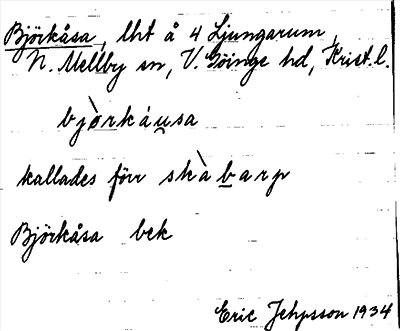 Björkåsa, lht å 4 Ljungarum,
N. Mellby sn, V. Göinge hd, Krist. l.
bjò̈rkáusa
kallades förr skàbarp
Björkåsa bek
Eric Jehpsson 1934